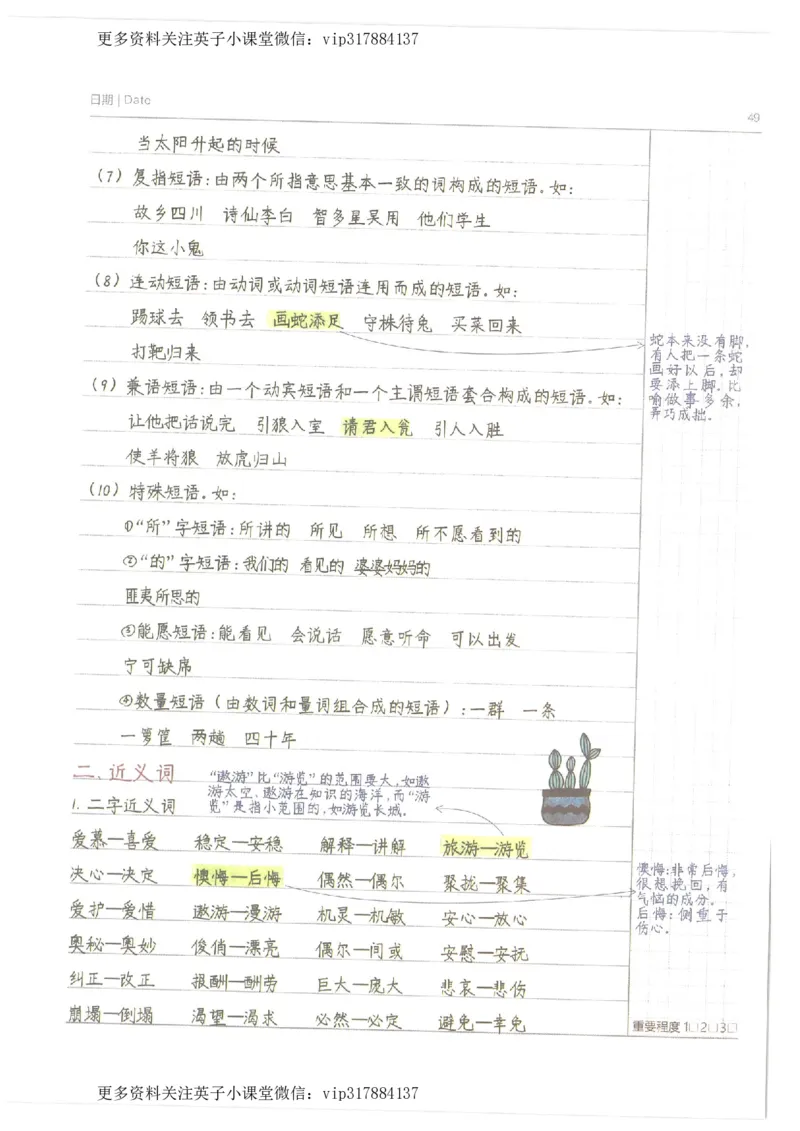 更多资料关注英子小课堂微信：vip317884137
日期 | Date
49
当太阳升起的时候
（7）复指短语：由两个所指意思基本一致的词构成的短语。如：
故乡四川 诗仙李白 智多星吴用 他们学生
你这小鬼
（8）连动短语：由动词或动词短语连用而成的短语。如：
踢球去 领书去 画蛇添足 守株待兔 买菜回来
打靶归来
蛇本来没有脚，
有人把一条蛇
画好以后，却
要添上脚。比
喻做事多余，
弄巧成拙。
（9）兼语短语：由一个动宾短语和一个主谓短语套合构成的短语。如：
让他把话说完 引狼入室 请君入瓮 引人入胜
使羊将狼 放虎归山
（10）特殊短语。如：
①“所”字短语：所讲的 所见 所想 所不愿看到的
②“的”字短语：我们的 看见的 婆婆妈妈的
匪夷所思的
③能愿短语：能看见 会说话 愿意听命 可以出发
宁可缺席
④数量短语（由数词和量词组合成的短语）：一群 一条
一箩筐 两趟 四十年
二、近义词
“遨游”比“游览”的范围要大，如遨
游太空、遨游在知识的海洋，而“游
览”是指小范围的，如游览长城。
1. 二字近义词
爱慕—喜爱 稳定—安稳 解释—讲解 旅游—游览
决心—决定 懊悔—后悔 偶然—偶尔 聚拢—聚集
懊悔：非常后悔，
很想挽回，有
气恼的成分。
后悔：侧重于
伤心。
爱护—爱惜 遨游—漫游 机灵—机敏 安心—放心
奥秘—奥妙 俊俏—漂亮 偶尔—间或 安慰—安抚
纠正—改正 报酬—酬劳 巨大—庞大 悲哀—悲伤
崩塌—倒塌 渴望—渴求 必然—必定 避免—幸免
重要程度 1□2□3□
更多资料关注英子小课堂微信：vip317884137